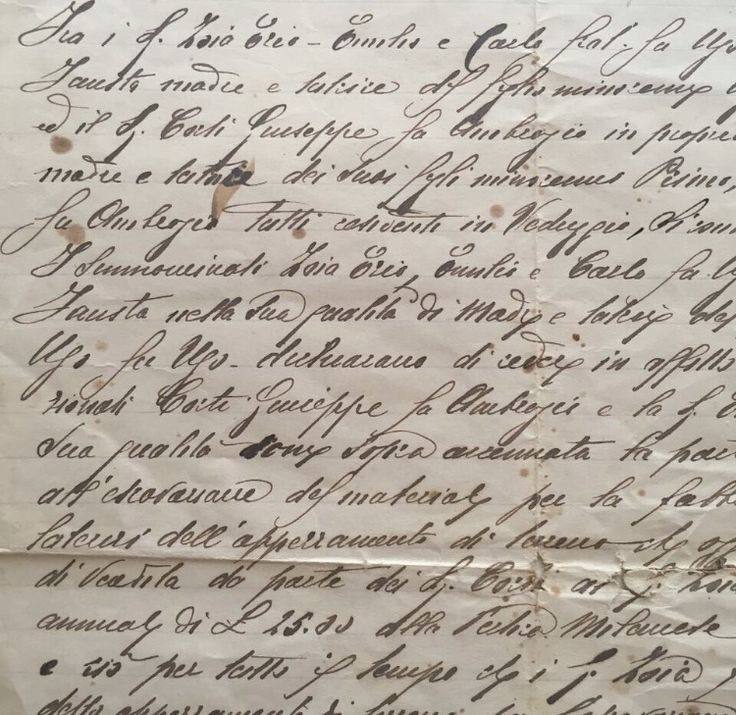 Tra i S. Zoia Ezio - Emilio e Carlo frat. fu Ugo
Fausta madre e tutrice del figlio minorenne
ed il S. Corti Giuseppe fu Ambrogio in proprio
madre e tutrice dei suoi figli minorenni Primo,
fu Ambrogio tutti residenti in Veduggio, si con
I summominati Zoia Ezio, Emilio e Carlo fu U
Fausta nella sua qualità di Madre e tutrice del
Ugo fu Ugo - dichiarano di cedere in affitto
zionati Corti Giuseppe fu Ambrogio e la S.
sua qualità come sopra accennata la parte
all'escavazione del materiale per la fabb
laterizi dell'apperzamento di terreno che og
di vendita da parte dei S. Corti ai S. Zoia
annuale di £ 25.00 alla Pertica Milanese
e ciò per tutto il tempo che i S. Zoia
dello apperzamento di terreno